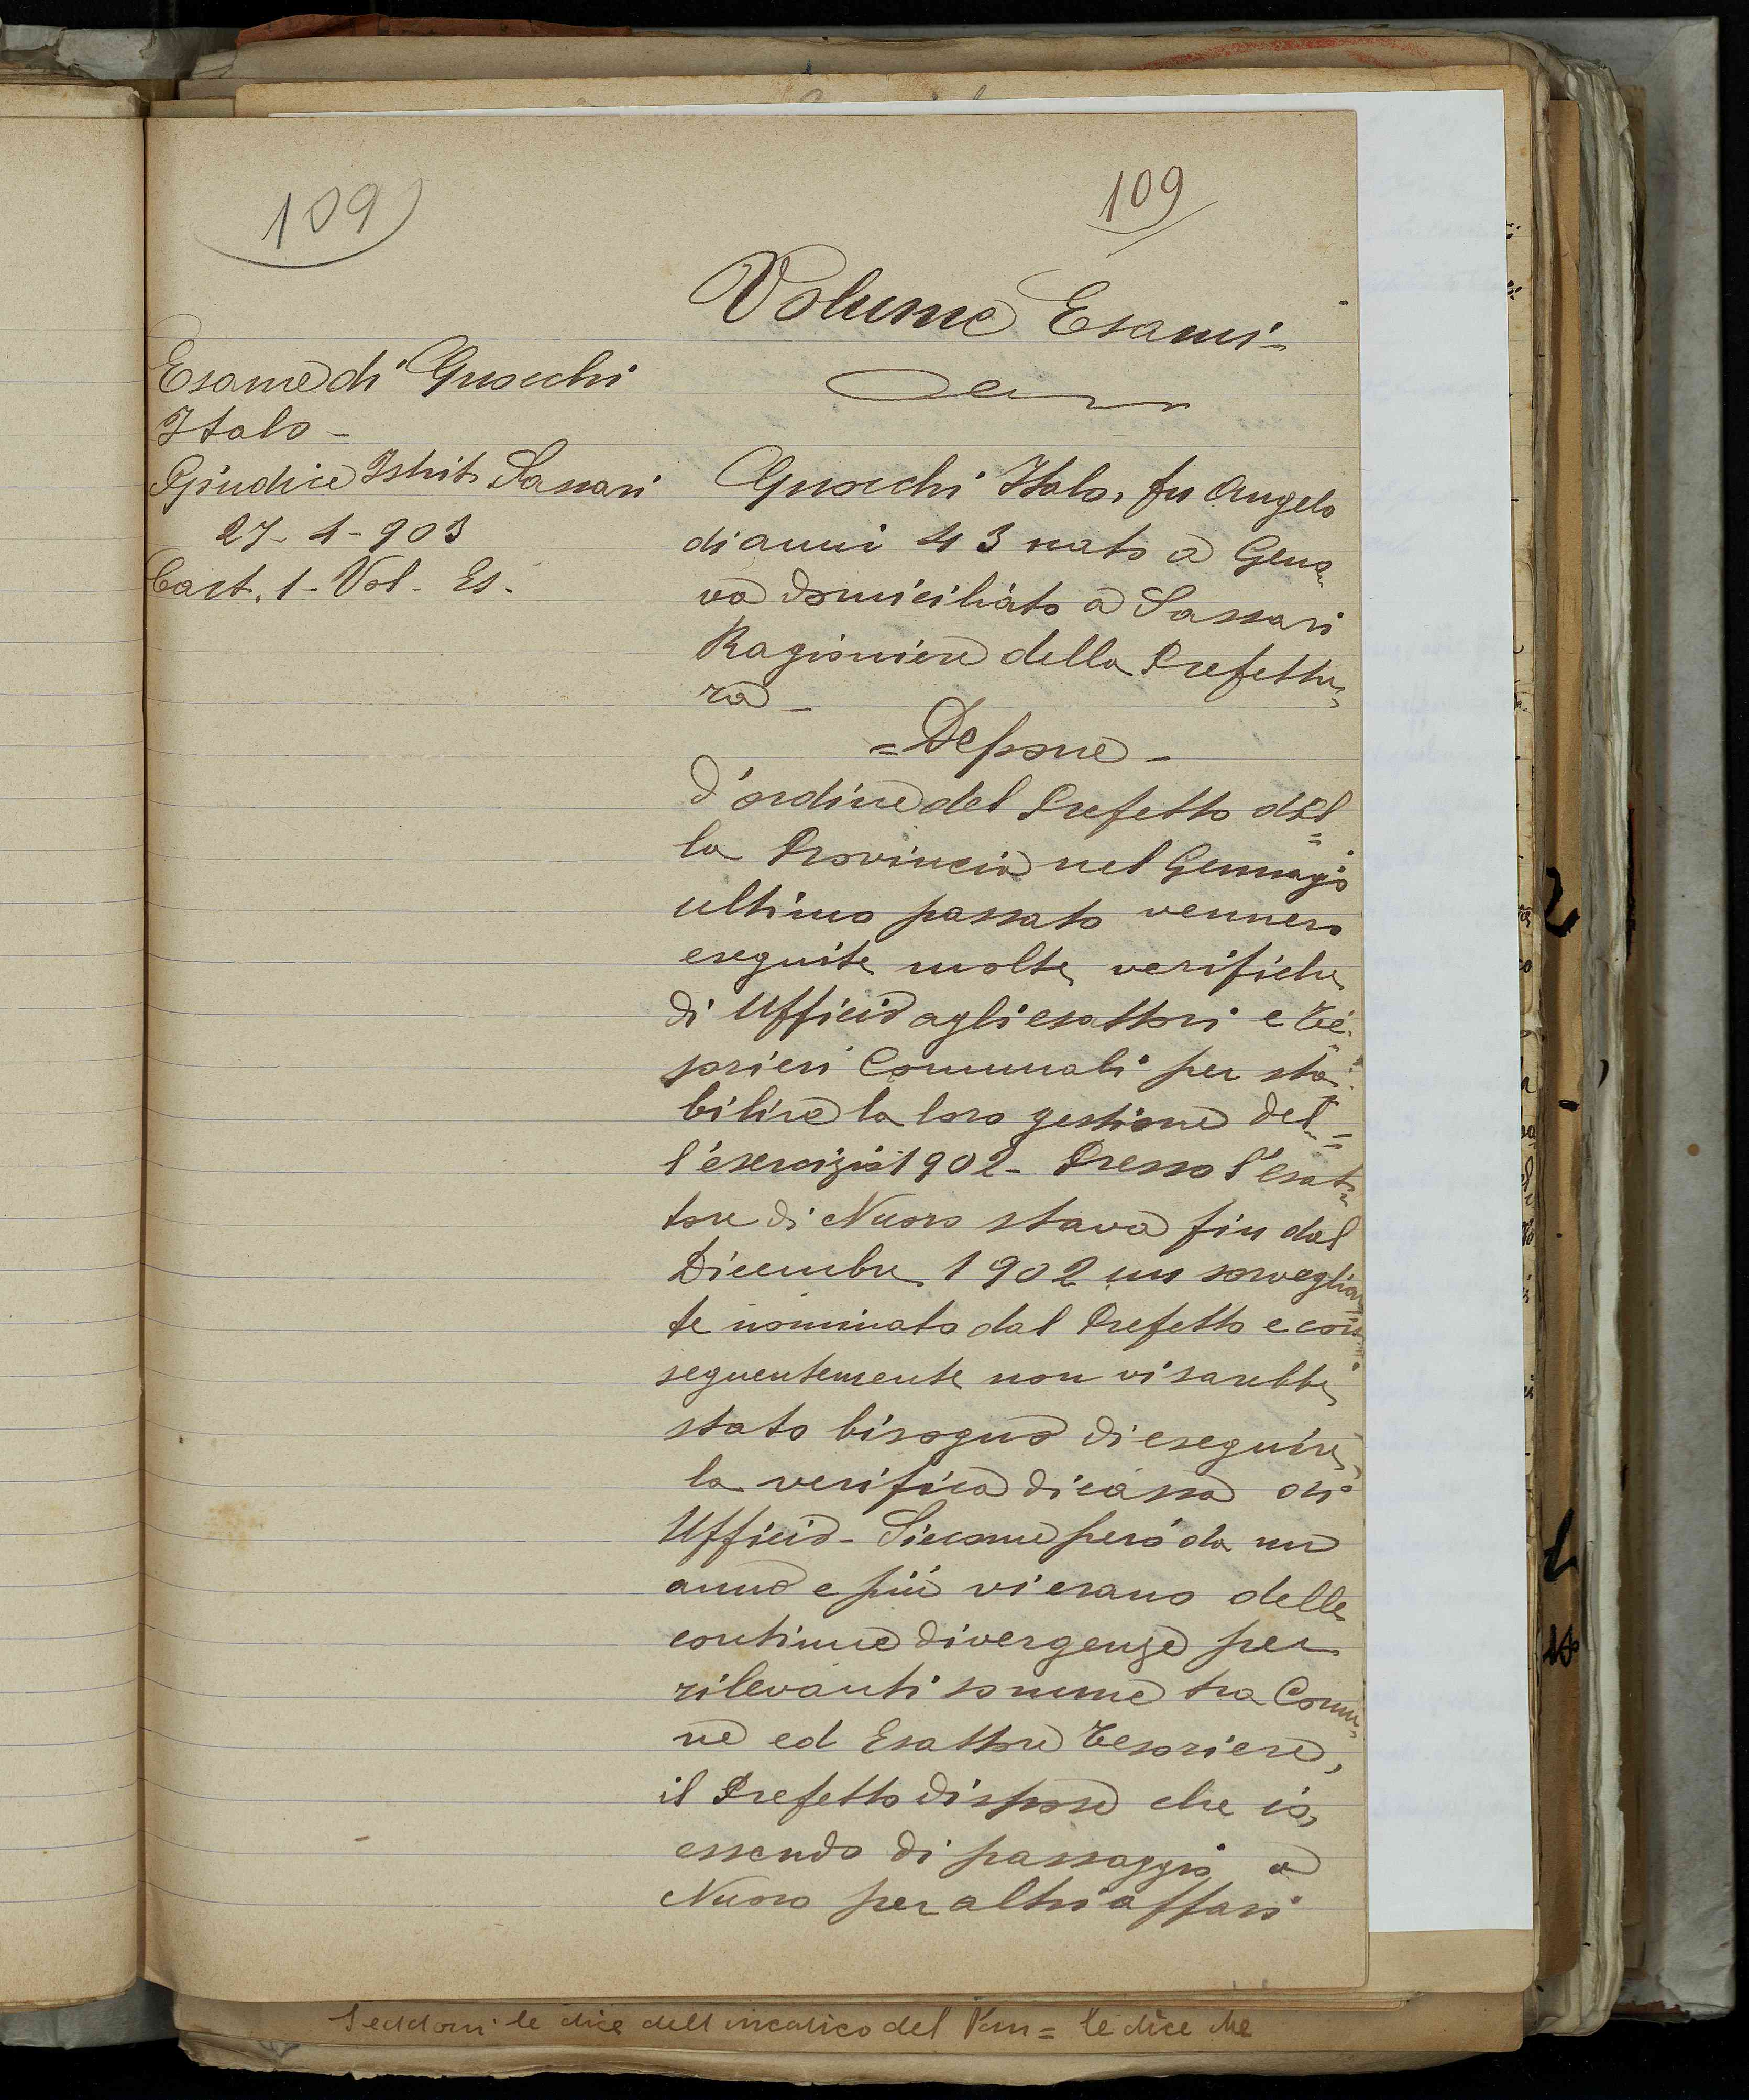 109
109
Volume Esami -
Esame di Gnocchi
Italo -
Giudice Istrit. Sassari
27 - 1 - 903
Cart. 1 - Vol - Es.
Gnocchi Italo, fu Angelo
di anni 43 nato a Geno„
va domiciliato a Sassari
Ragioniere della Prefettu„
ra -
= Depone -
D'ordine del Prefetto del=
la Provincia nel Gennajo
ultimo passato vennero
eseguite molte verifiche
di Ufficio agli esattori e Te=
sorieri Comunali per sta=
bilire la loro gestione del=
l'esercizio 1902 - Presso l'esat„
tore di Nuoro stava fin dal
Dicembre 1902 un sorveglian„
te nominato dal Prefetto e con„
seguentemente non vi sarebbe
stato bisogno di eseguire
la verifica di cassa di
Ufficio - Siccome però da un
anno e più vi erano delle
continue divergenze per
rilevanti somme tra Comu„
ne ed Esattore Tesoriere,
il Prefetto dispose che io,
essendo di passaggio a
Nuoro per altri affari
le dice dell'incarico del = le dice che